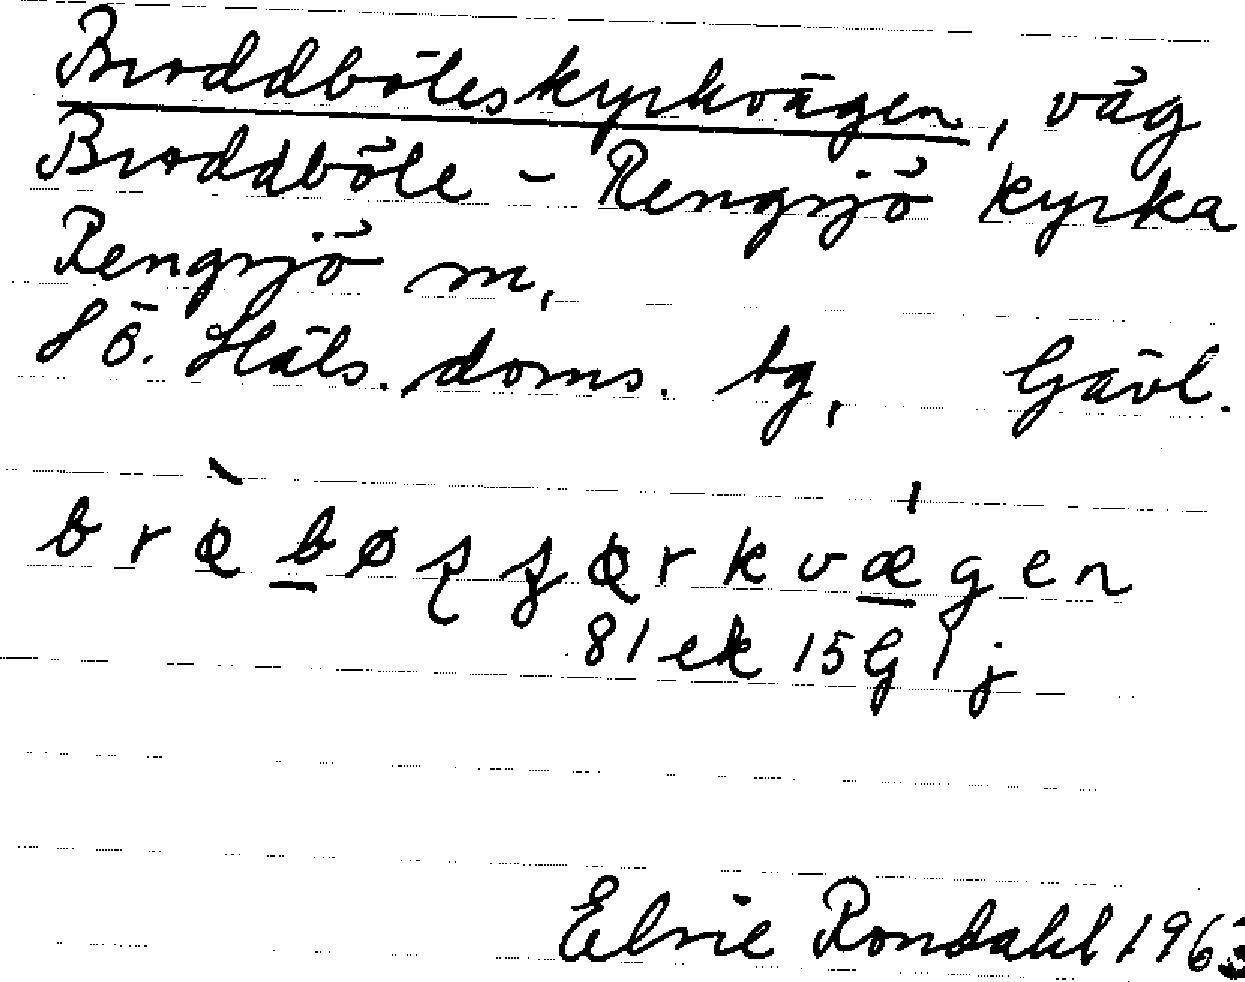 Broddböleskyrkvägen, väg
Broddböle - Rengsjö kyrka
Rengsjö sn,
Sö. Häls. doms. tg, Gävl.
81 ek 15G 1 j
Elvie Rondahl 1963